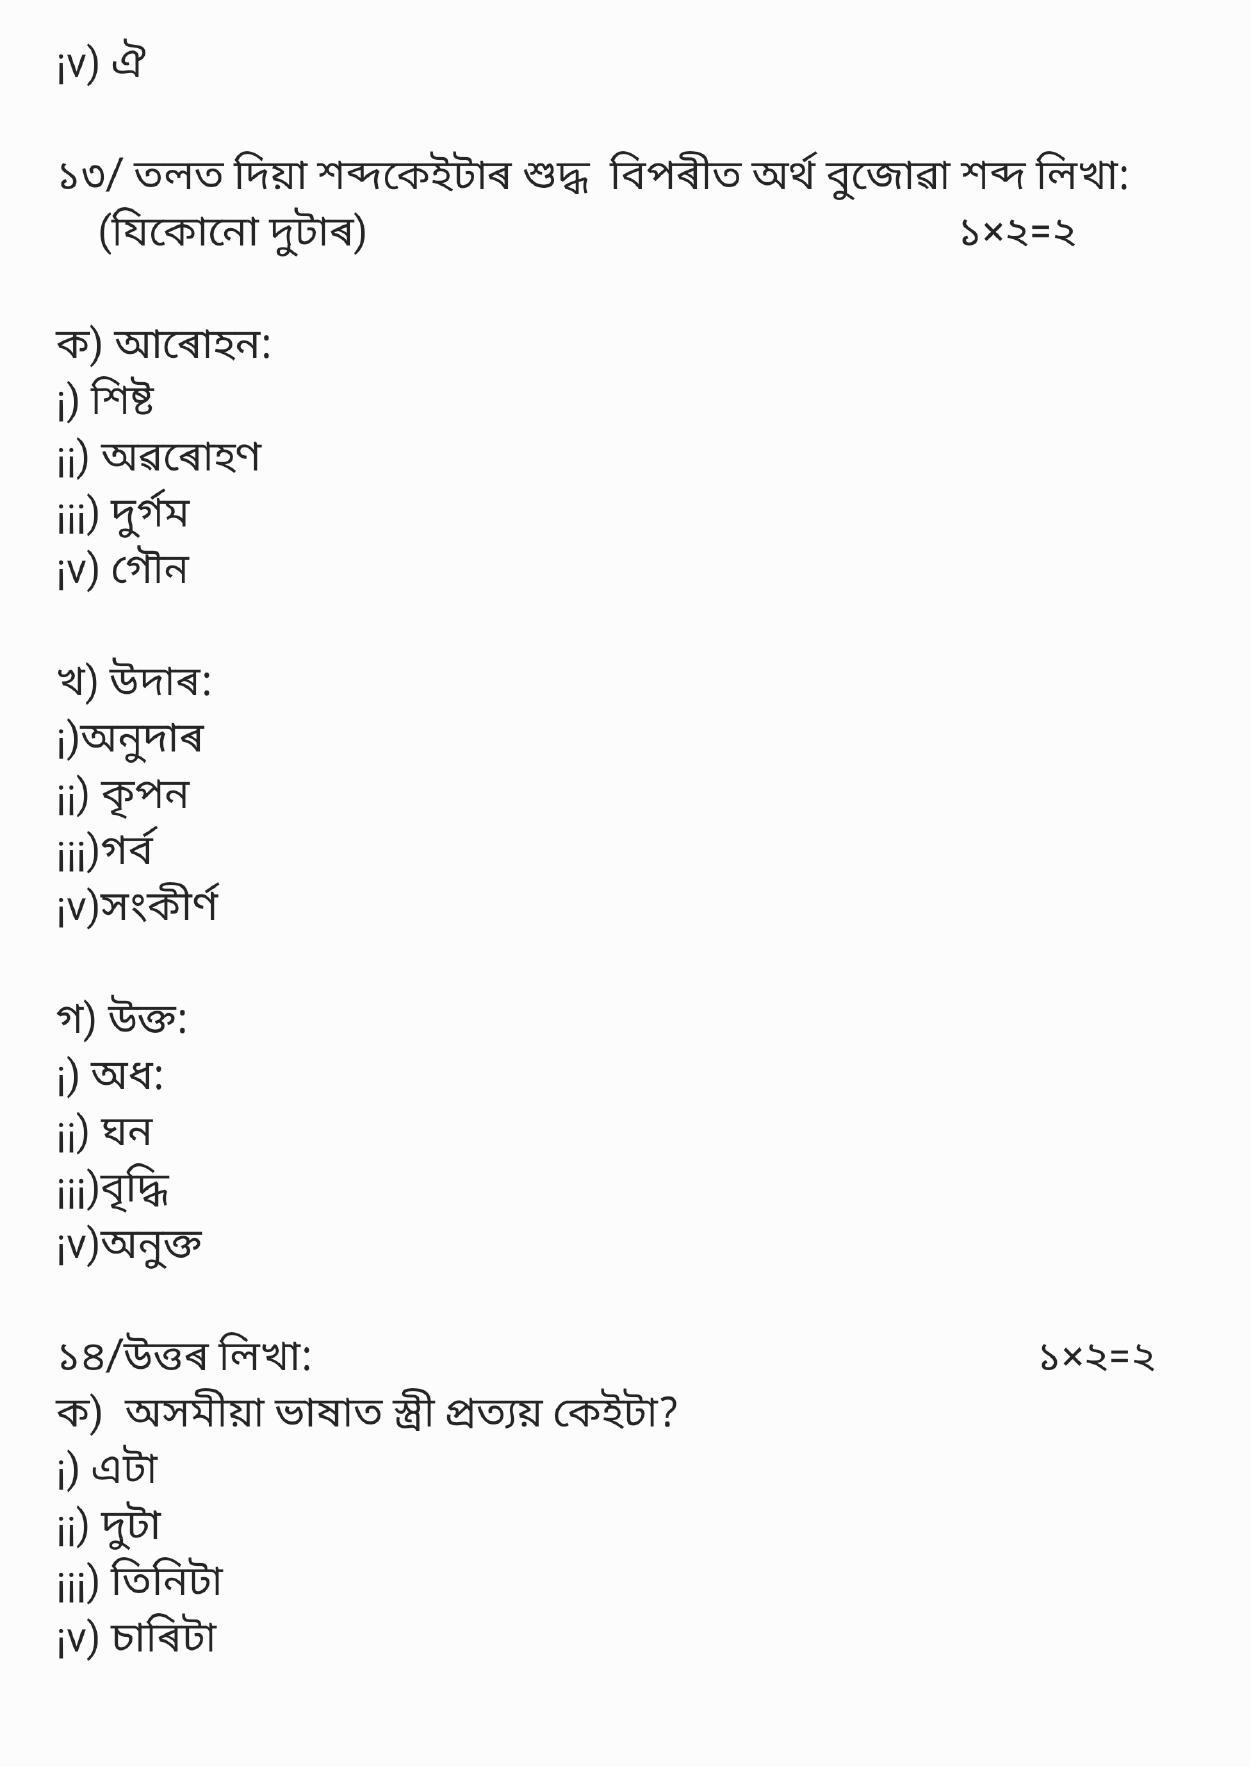 iv) ঐ
১৩/ তলত দিয়া শব্দকেইটাৰ শুদ্ধ বিপৰীত অৰ্থ বুজোৱা শব্দ লিখা:
(যিকোনো দুটাৰ) ১×২=২
ক) আৰোহন:
i) শিষ্ট
ii) অৱৰোহণ
iii) দুৰ্গম
iv) গৌন
খ) উদাৰ:
i)অনুদাৰ
ii) কৃপন
iii)গৰ্ব
iv)সংকীৰ্ণ
গ) উক্ত:
i) অধ:
ii) ঘন
iii)বৃদ্ধি
iv)অনুক্ত
১৪/উত্তৰ লিখা: ১×২=২
ক) অসমীয়া ভাষাত স্ত্ৰী প্ৰত্যয় কেইটা?
i) এটা
ii) দুটা
iii) তিনিটা
iv) চাৰিটা